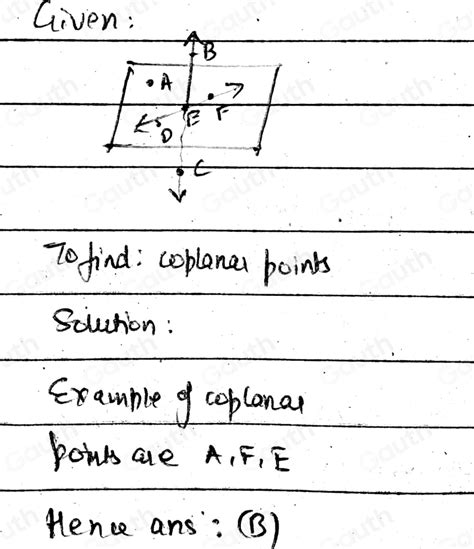 Given:
B
A
E F
D
C
To find: coplanar points
Solution:
Example of coplanar
points are A, F, E
Hence ans: (B)